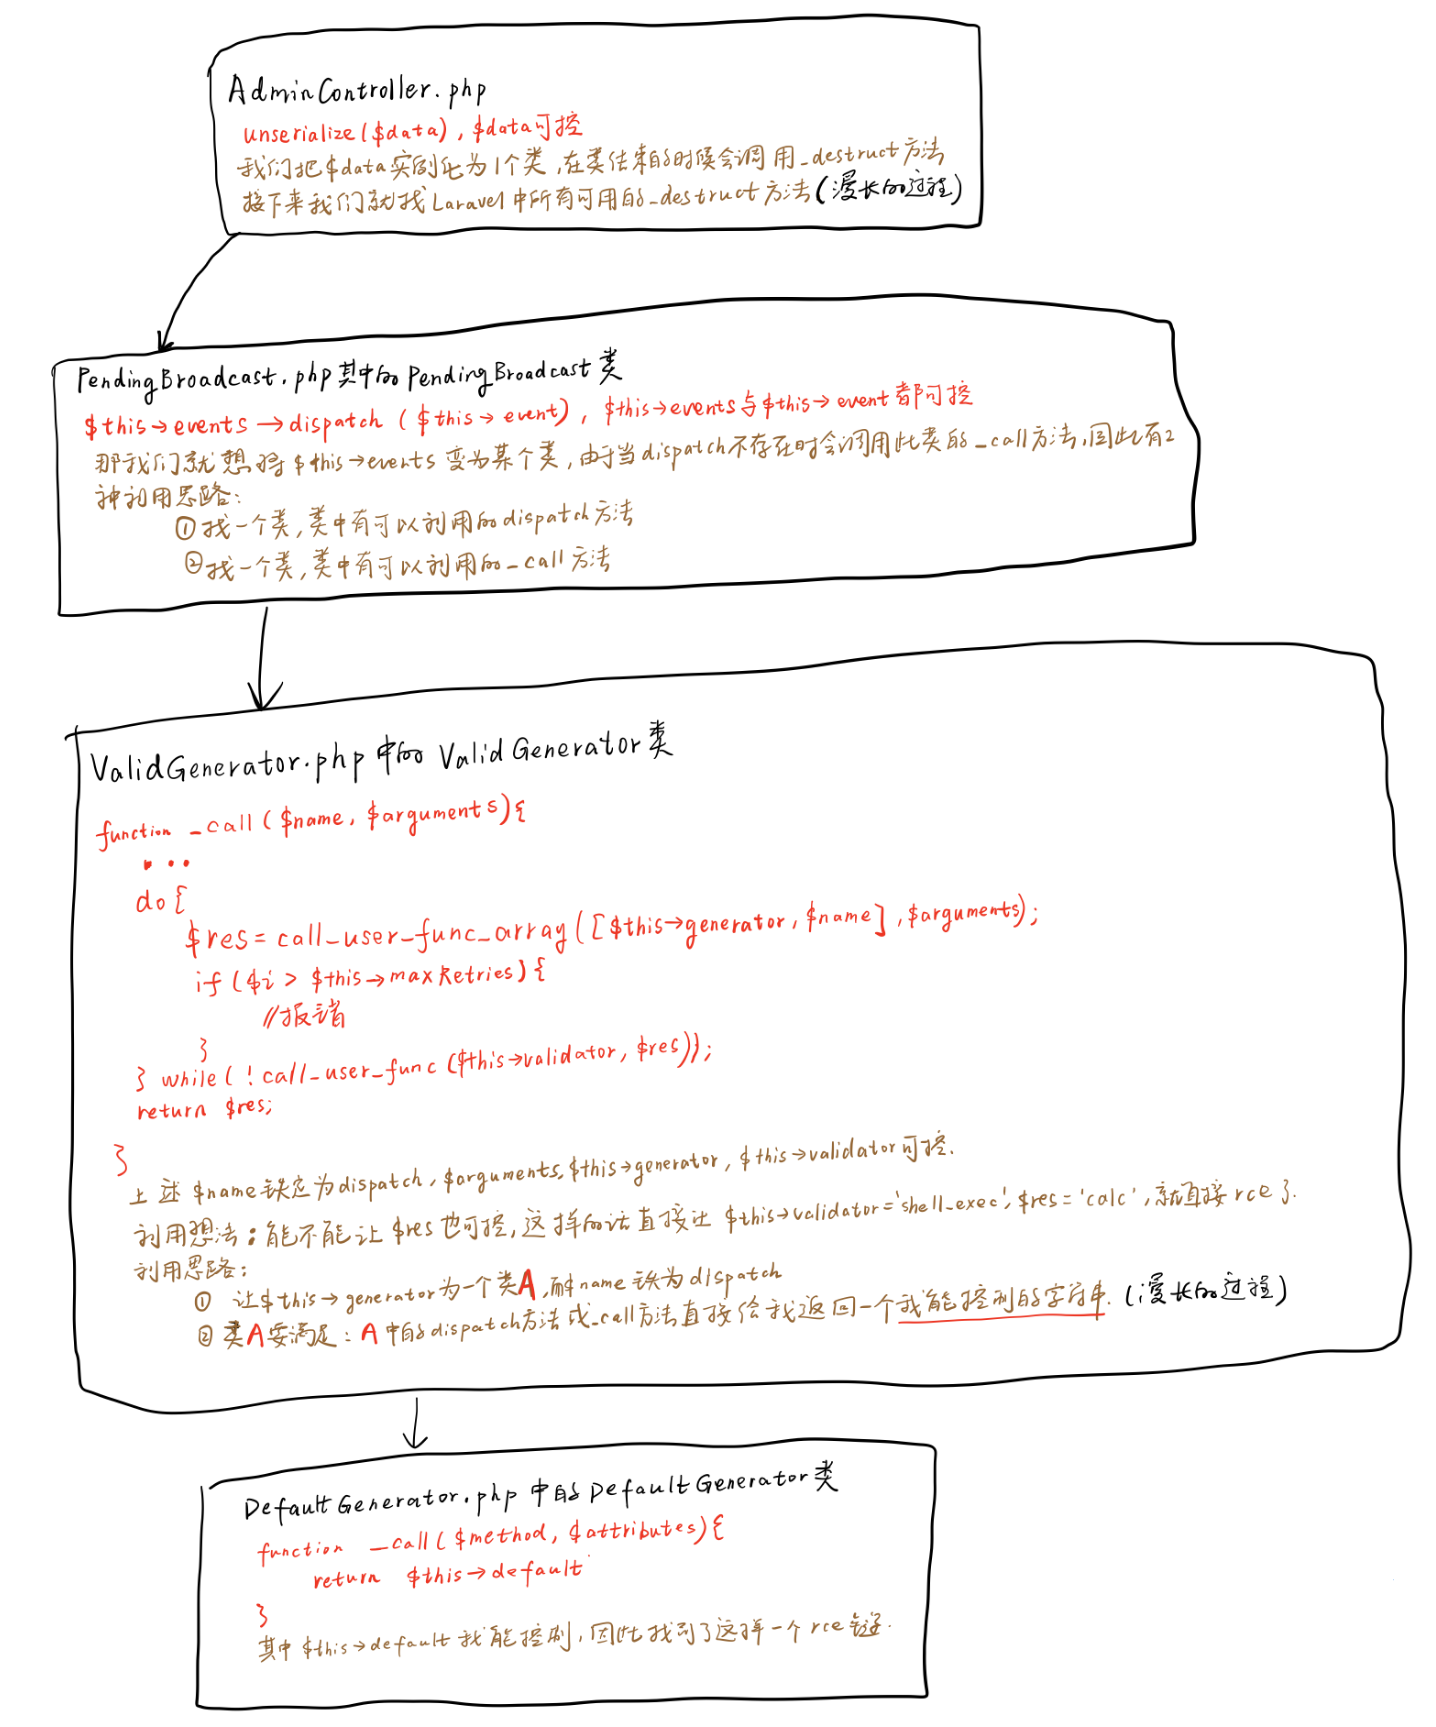 AdminController.php
unserialize($data), $data可控
我们把$data实例化为1个类,在类结束的时候会调用_destruct方法
接下来我们就找Laravel中所有可用的_destruct方法(漫长的过程)
PendingBroadcast.php其中的PendingBroadcast类
$this→events→dispatch($this→event), $this→events与$this→event都可控
那我们就想将$this→events变为某个类,由于当dispatch不存在时会调用此类的_call方法,因此有2
种利用思路:
①找一个类,类中有可以利用的dispatch方法
②找一个类,类中有可以利用的_call方法
ValidGenerator.php中的ValidGenerator类
function _call($name, $arguments){
...
do{
$res=call_user_func_array([$this→generator, $name],$arguments);
if($i > $this→maxRetries){
//报错
}
} while(!call_user_func($this→validator, $res));
return $res;
}
上述$name铁定为dispatch, $arguments,$this→generator, $this→validator可控.
利用想法:能不能让$res也可控,这样的话直接让$this→validator='shell_exec',$res='calc',就直接rce了.
利用思路:
① 让$this→generator为一个类A,而name铁为dispatch
② 类A要满足:A中的dispatch方法或_call方法直接给我返回一个我能控制的字符串.(漫长的过程)
DefaultGenerator.php中的DefaultGenerator类
function _call($method, $attributes){
return $this→default
}
其中$this→default我能控制,因此找到了这样一个rce链.